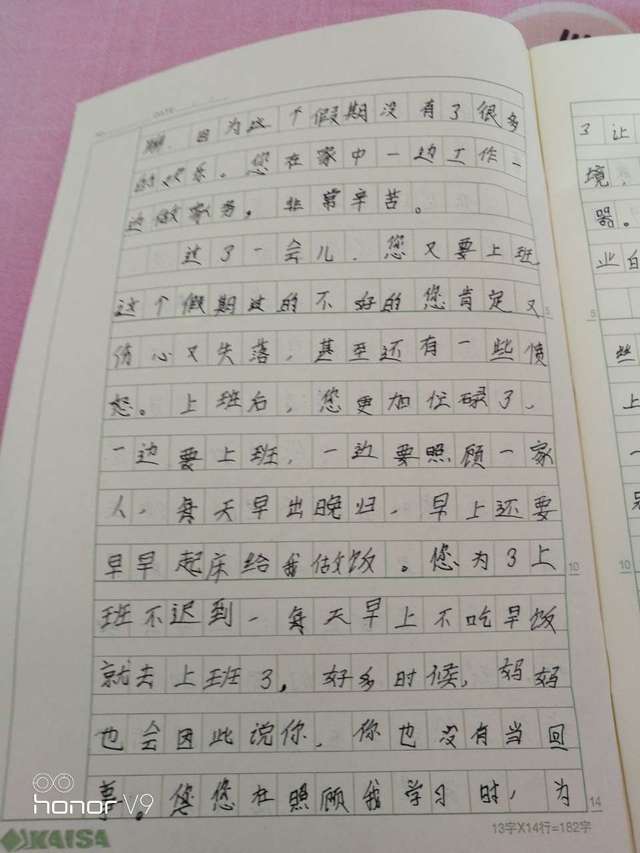 DATE
因为这个假期没有了很多
的欢乐。您在家中一边工作一
边做家务。非常辛苦。
过了一会儿，您又要上班
这个假期过的不好的您肯定又
伤心又失落，甚至还有一些愤
怒。上班后，您更加忙碌了，
一边要上班，一边要照顾一家
人，每天早出晚归，早上还要
早早起床给我做饭。您为了上
班不迟到，每天早上不吃早饭
就去上班了，好多时候，妈妈
也会因此说你，你也没有当回
事。您您在照顾我学习时，为
5
10
14
13字X14行=182字
KAISA
honor V9
了让
境，
器。
业的
5
丝
上
一
10